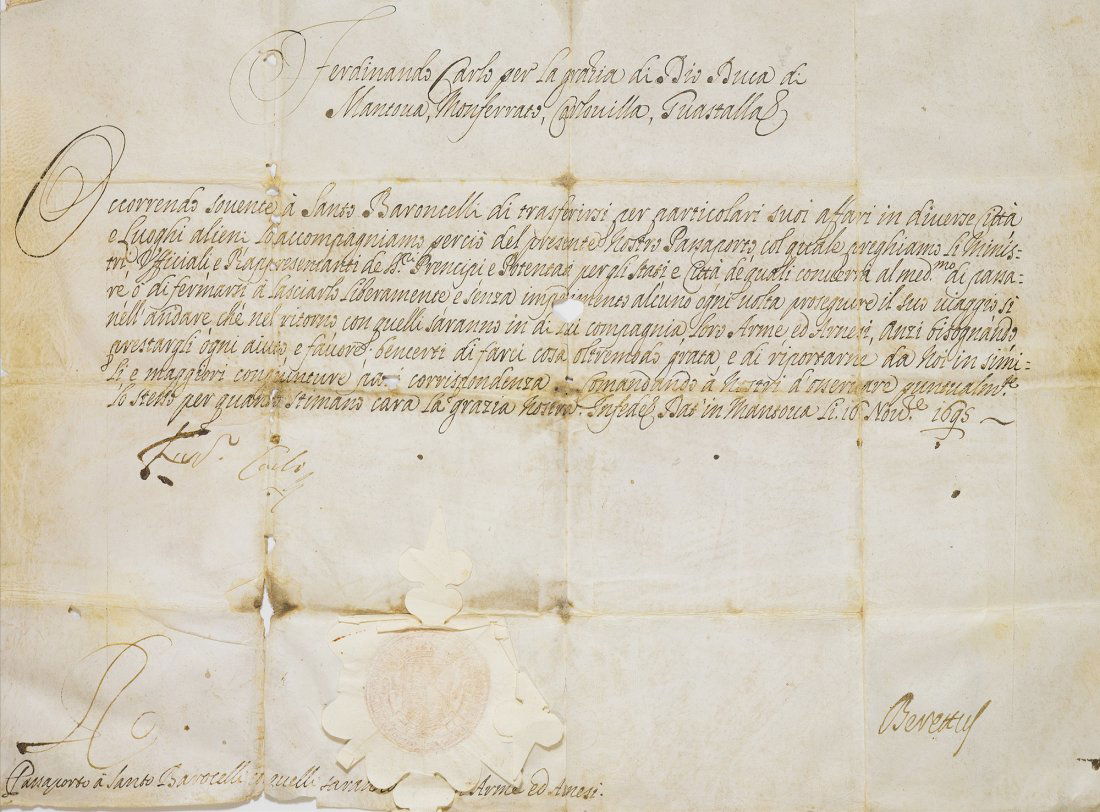 Ferdinando Carlo per la grazia di Dio Duca di
Mantova, Monferrato, Carlovilla, Guastalla &
Occorrendo sovente à Santo Baroncelli di trasferirsi per particolari suoi affari in diverse Città
e Luoghi alieni lo accompagniamo perciò del presente Nostro Passaporto, col quale preghiamo li Minis-
tri, Ufficiali e Rappresentanti de Ss.ri Prencipi e Potentati per gli Stati e Città, de quali converrà al med.mo di passa-
re ò di fermarsi à lasciarlo liberamente e senza impedimento alcuno ogni volta proseguire il suo viaggio sì
nell'andare, che nel ritorno con quelli saranno in di lui compagnia, loro Arme ed Arnesi, anzi bisognando
prestargli ogni aiuto, e favore bencerti di farci cosa oltremodo grata, e di riportarne da Noi in simi-
li, e maggiori congiunture pari corrispondenza Comandando à Nostri d'osservare puntualm.te
lo stesso per quanto stimano cara la grazia Nostra. In fede & Dat' in Mantova li 16 Nov.e 1695
Ferd. Carlo
Berettus
Passaporto à Santo Baroncelli quelli saran Arme ed Arnesi.